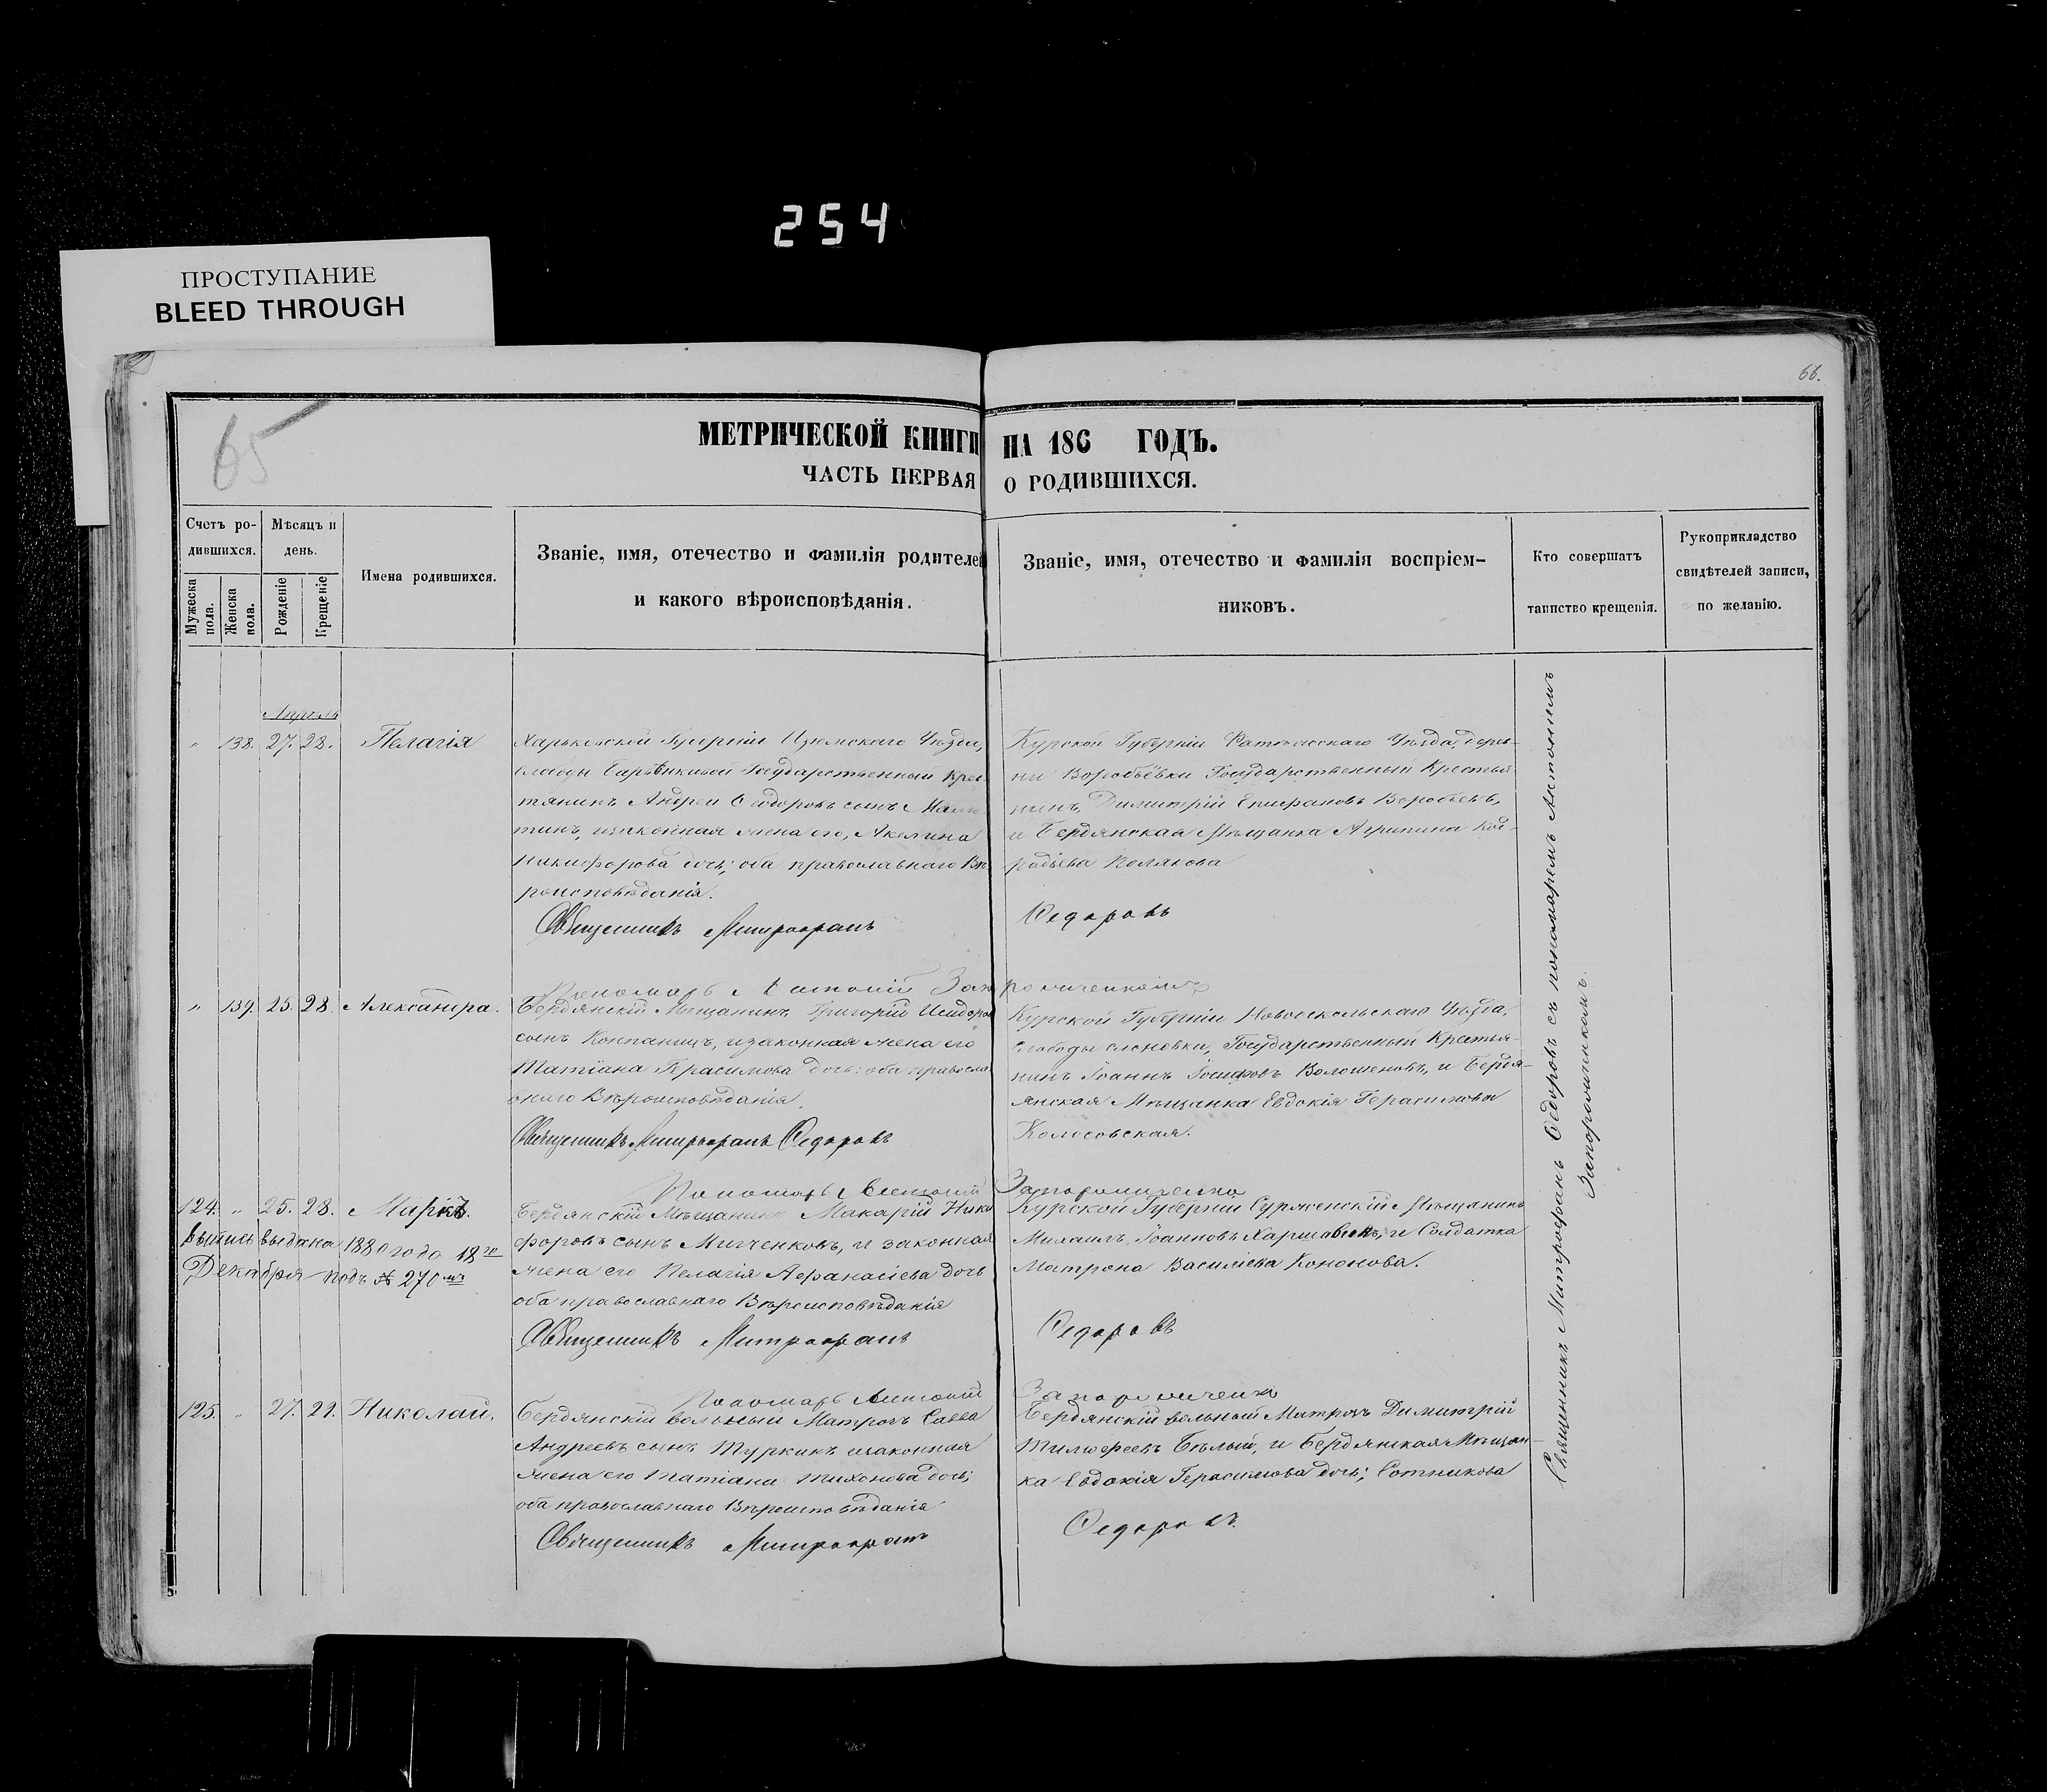 254
ПРОСТУПАНИЕ
BLEED THROUGH
66.
65
МЕТРИЧЕСКОЙ КНИГИ НА 186 ГОДЪ.
ЧАСТЬ ПЕРВАЯ О РОДИВШИХСЯ.
Счетъ ро-
дившихся.
Мужеска пола.
Женска пола.
Мѣсяцъ и
день.
Рожденіе
Крещеніе
Имена родившихся.
Званіе, имя, отечество и фамилія родителей
и какого вѣроисповѣданія.
Званіе, имя, отечество и фамилія воспріем-
никовъ.
Кто совершатъ
таинство крещенія.
Рукоприкладство
свидѣтелей записи,
по желанію.
Апрель
" 138. 27. 28. Пелагія
Харьковской Губерніи Изюмскаго Уѣзда,
Государственный Крес
тянинъ Андрей Феодоровъ сынъ
тинъ, изаконная жена его, Акелина
Никифорова дочь; оба православнаго Вѣ
роисповѣданія.
Священникъ Митрофанъ
Курской Губерніи Уѣзда, дерев-
ни Воробьёвки Государственный Крестья
нинъ, Димитрій Епифановъ Воробьевъ,
и Бердянская Мѣщанка Агрипина Код-
ратьева Полякова
Федоровъ
Пономарь Антоній Запорожченко
" 139. 25. 28. Александра.
Бердянскій Мѣщанинъ Григорій Исидоров
сынъ изаконная жена его
Татіана Герасимова дочь: оба правосла
внаго Вѣроисповѣданія
Священникъ Митрофанъ Федоровъ
Курской Губерніи Новооскольскаго Уѣзда,
Слободы Слоновки, Государственный Крестья-
нинъ Іоаннъ Іосифовъ Волошеновъ, и Бердя-
нская Мѣщанка Евдокія Герасимова
Колосовская.
Пономарь Антоній Запорожченко
124. " 25. 28. Маркъ.
Выпись выдана 1880 года 18го
Декабря подъ № 270мъ
Бердянскій Мѣщанинъ Макарій Ники
форовъ сынъ Мигченковъ, и законная
жена его Пелагія Афанасіева дочь
оба православнаго Вѣроисповѣданія
Священникъ Митрофанъ
Курской Губерніи Сурженскій Мѣщанинъ
Михаилъ Іоанновъ и Солдатка
Матрона Василіева Кононова.
Федоровъ
Пономарь Антоній Запорожченко
125. " 27. 29. Николай.
Бердянскій вольный Матрозъ Савва
Андреевъ сынъ Туркинъ изаконная
жена его Татіана Тихонова дочь;
оба православнаго Вѣроисповѣданія
Священникъ Митрофанъ
Бердянскій вольный Матрозъ Димитрій
Тимофеевъ Бѣлый, и Бердянская Мѣщан-
ка Евдокія Герасимова дочь; Сотникова
Федоровъ.
Священникъ Митрофанъ Федоровъ съ пономаремъ Антоніемъ
Запорожченкомъ.